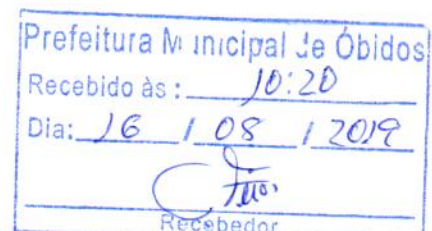 Prefeitura Municipal de Óbidos
Recebido às: 10:20
Dia: 16 / 08 / 2019
Recebedor